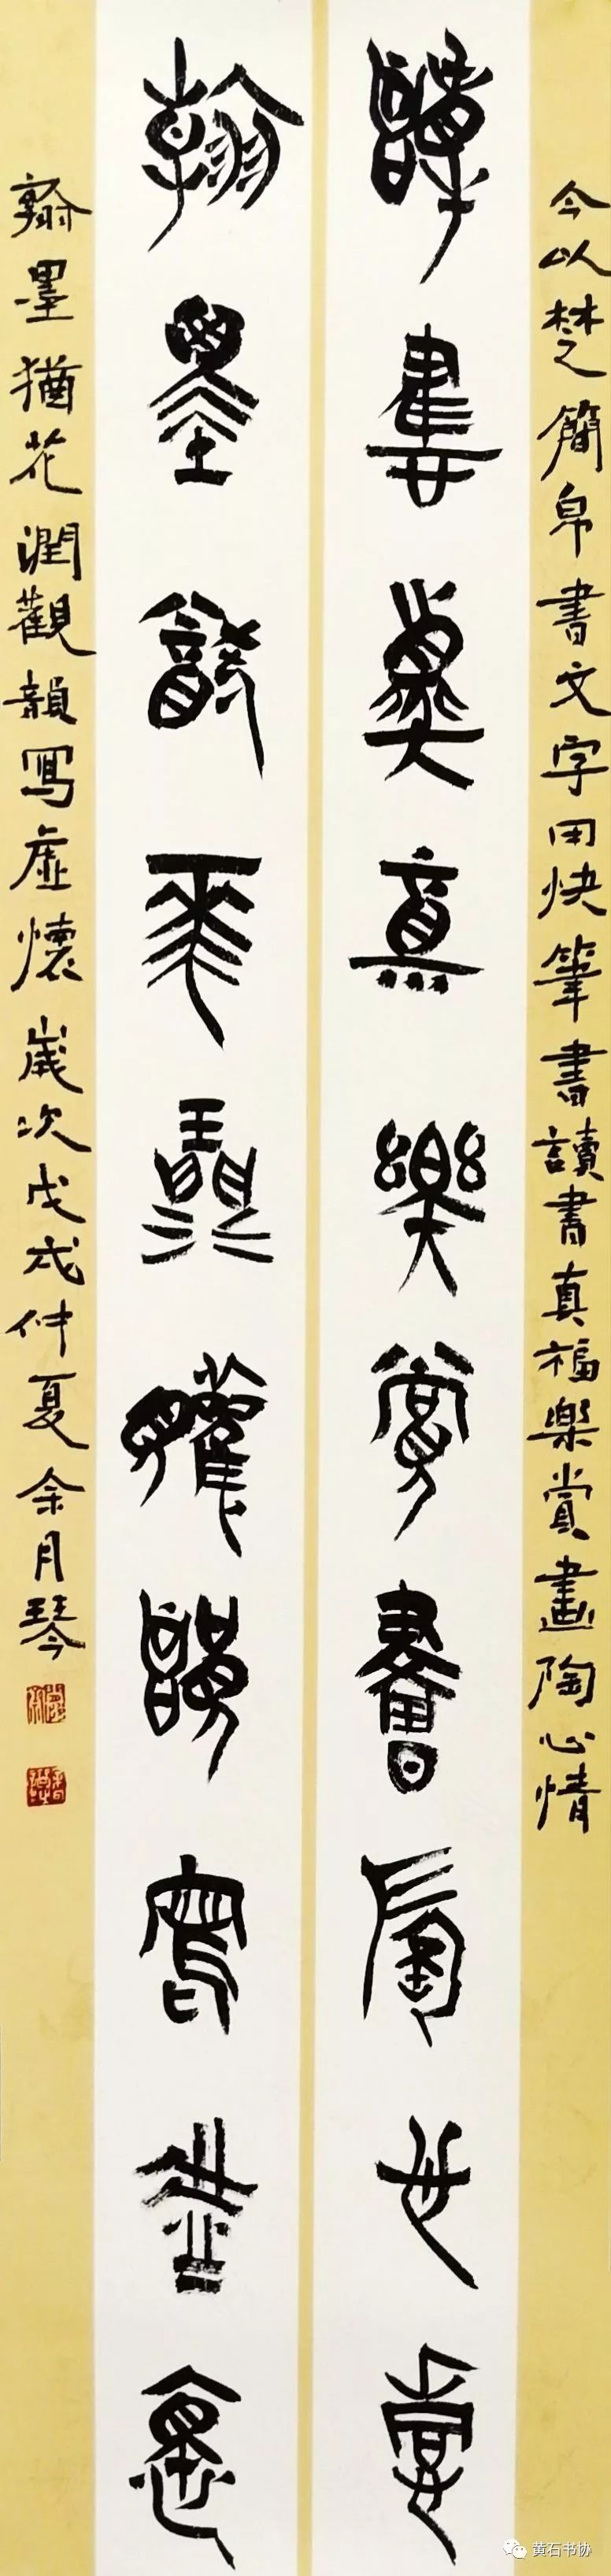 今以楚簡帛書文字用快筆書讀書真福樂賞畫陶心情
讀書真福樂賞畫陶心情
翰墨猶花潤觀韻寫虛懷
翰墨猶花潤觀韻寫虛懷歲次戊戌仲夏余月琴
黄石书协